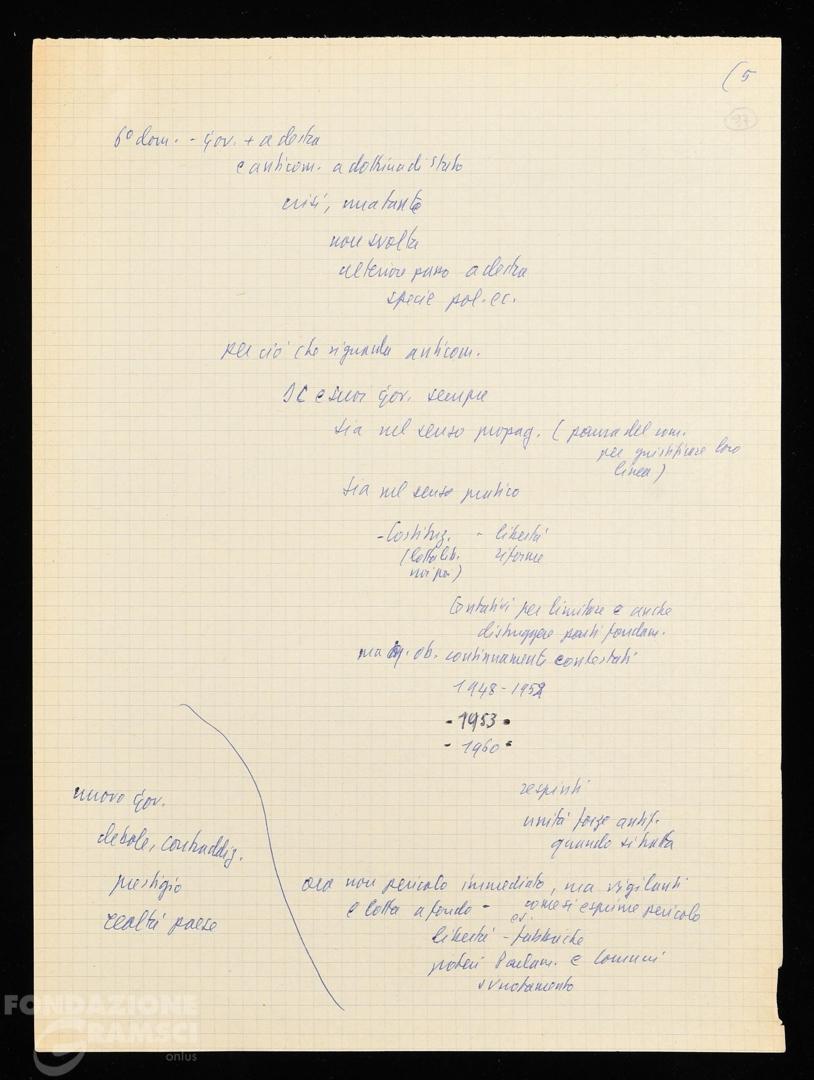 (5
97
6º dom. - gov. + a destra
e anticom. a dottrina di Stato
crisi,
non svolta
ulteriore passo a destra
specie pol. ec.
per ciò che riguarda anticom.
DC e suoi gov. sempre
sia nel senso propag. (paura del com.
per giustificare loro
linea)
sia nel senso pratico
- Costituz. - libertà
(lotta lib. riforme
noi poi)
tentativi per limitare e anche
distruggere parti fondam.
ma ob. continuamente contestati
1948-1952
- 1953
- 1960
respinti
unità forze antif.
quando si tratta
nuovo gov.
debole, contraddiz.
prestigio
realtà paese
ora non pericolo immediato, ma vigilanti
e lotta a fondo - come si esprime pericolo
es.
libertà - fabbriche
poteri Parlam. e Comuni
svuotamento
FONDAZIONE
GRAMSCI
onlus